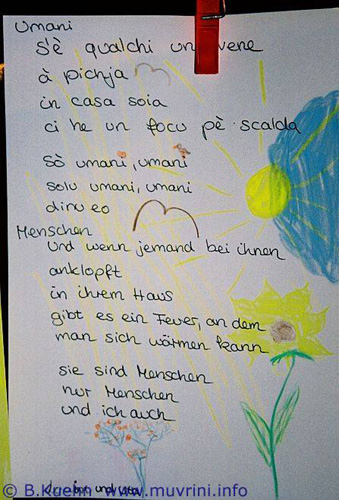 Umani
S'è qualchi un vene
à pichja
in casa soia
ci he un focu pè scalda
sò umani, umani
solu umani, umani
dinu eo
Menschen
Und wenn jemand bei ihnen
anklopft
in ihrem Haus
gibt es ein Feuer, an dem
man sich wärmen kann
sie sind Menschen
nur Menschen
und ich auch
© B.Kuehn - www.muvrini.info